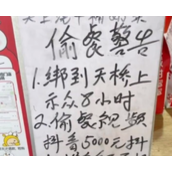 偷餐警告
1.绑到天桥上
示众8小时
2.偷餐视频
抖音5000元抖